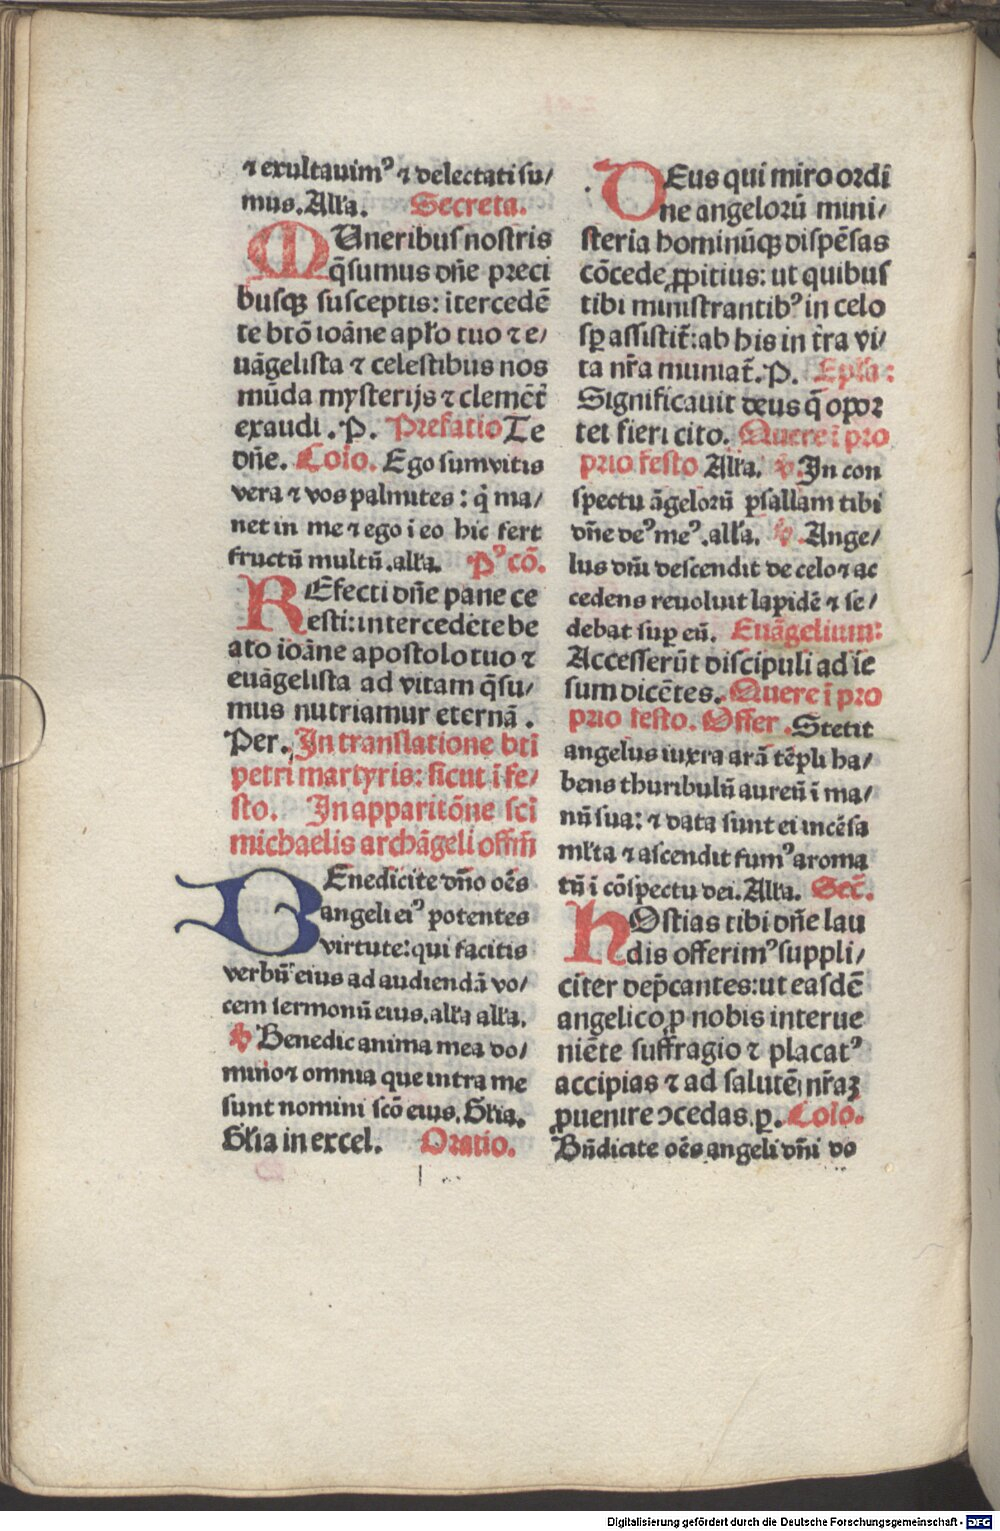 ⁊ exultauimꝰ ⁊ delectati su/
mus. Alľa. Secreta.
MUneribus nostris
q̄sumus dn̄e preci
busqꝫ susceptis: ītercedē
te btō ioāne apľo tuo ⁊ e/
uāgelista ⁊ celestibus nos
mūda mysterijs ⁊ clemēt̄
exaudi. P. Prefatio Te
dn̄e. Cōio. Ego sum vitis
vera ⁊ vos palmites: q̇ ma/
net in me ⁊ ego ī eo hic fert
fructū multū. alľa. Pꝰ cō.
REfecti dn̄e pane ce
lesti: intercedēte be
ato ioāne apostolo tuo ⁊
euāgelista ad vitam q̄su/
mus nutriamur eternā.
Per. In translatione bti
petri martyris: sicut ī fe/
sto. In apparitōne sci
michaelis archāgeli offm̄
BEnedicite dn̄o oēs
angeli eiꝰ potentes
virtute: qui facitis
verbū eius ad audiendā vo/
cem sermonū eius. alľa alľa.
℣ Benedic anima mea do/
mino ⁊ omnia que intra me
sunt nomini scō eius. Gľia.
Gľia in excel. Oratio.
DEus qui miro ordi
ne angelorū mini/
steria hominūqꝫ dispēsas
cōcede ꝓpitius: ut quibus
tibi ministrantibꝰ in celo
sꝑ assistit̄: ab his in tr̄a vi/
ta nr̄a muniat̄. P. Epľa:
Significauit deus q̄ opor
tet fieri cito. Quere ī pro
prio festo Alľa. ℣. In con
spectu āgelorū psallam tibi
dn̄e deꝰ meꝰ. alľa. ℣. Ange/
lus dn̄i descendit de celo ⁊ ac
cedens reuoluit lapidē ⁊ se/
debat suꝑ eū. Euāgelium:
Accesserūt discipuli ad ie
sum dicētes. Quere ī pro
prio festo. Offer. Stetit
angelus iuxra arā tēpli ha/
bens thuribulū aureū ī ma/
nū sua: ⁊ data sunt ei incēsa
mľta ⁊ ascendit fumꝰ aroma
tū ī cōspectu dei. Alľa. Sec̄.
HOstias tibi dn̄e lau
dis offerimꝰ suppli/
citer dep̄cantes: ut easdē
angelico ꝓ nobis interue
niēte suffragio ⁊ placatꝰ
accipias ⁊ ad salutē nr̄aꝫ
ꝓuenire ɔcedas. ꝑ. Cōio.
Bn̄dicite oēs angeli dn̄i do
Digitalisierung gefördert durch die Deutsche Forschungsgemeinschaft - DFG